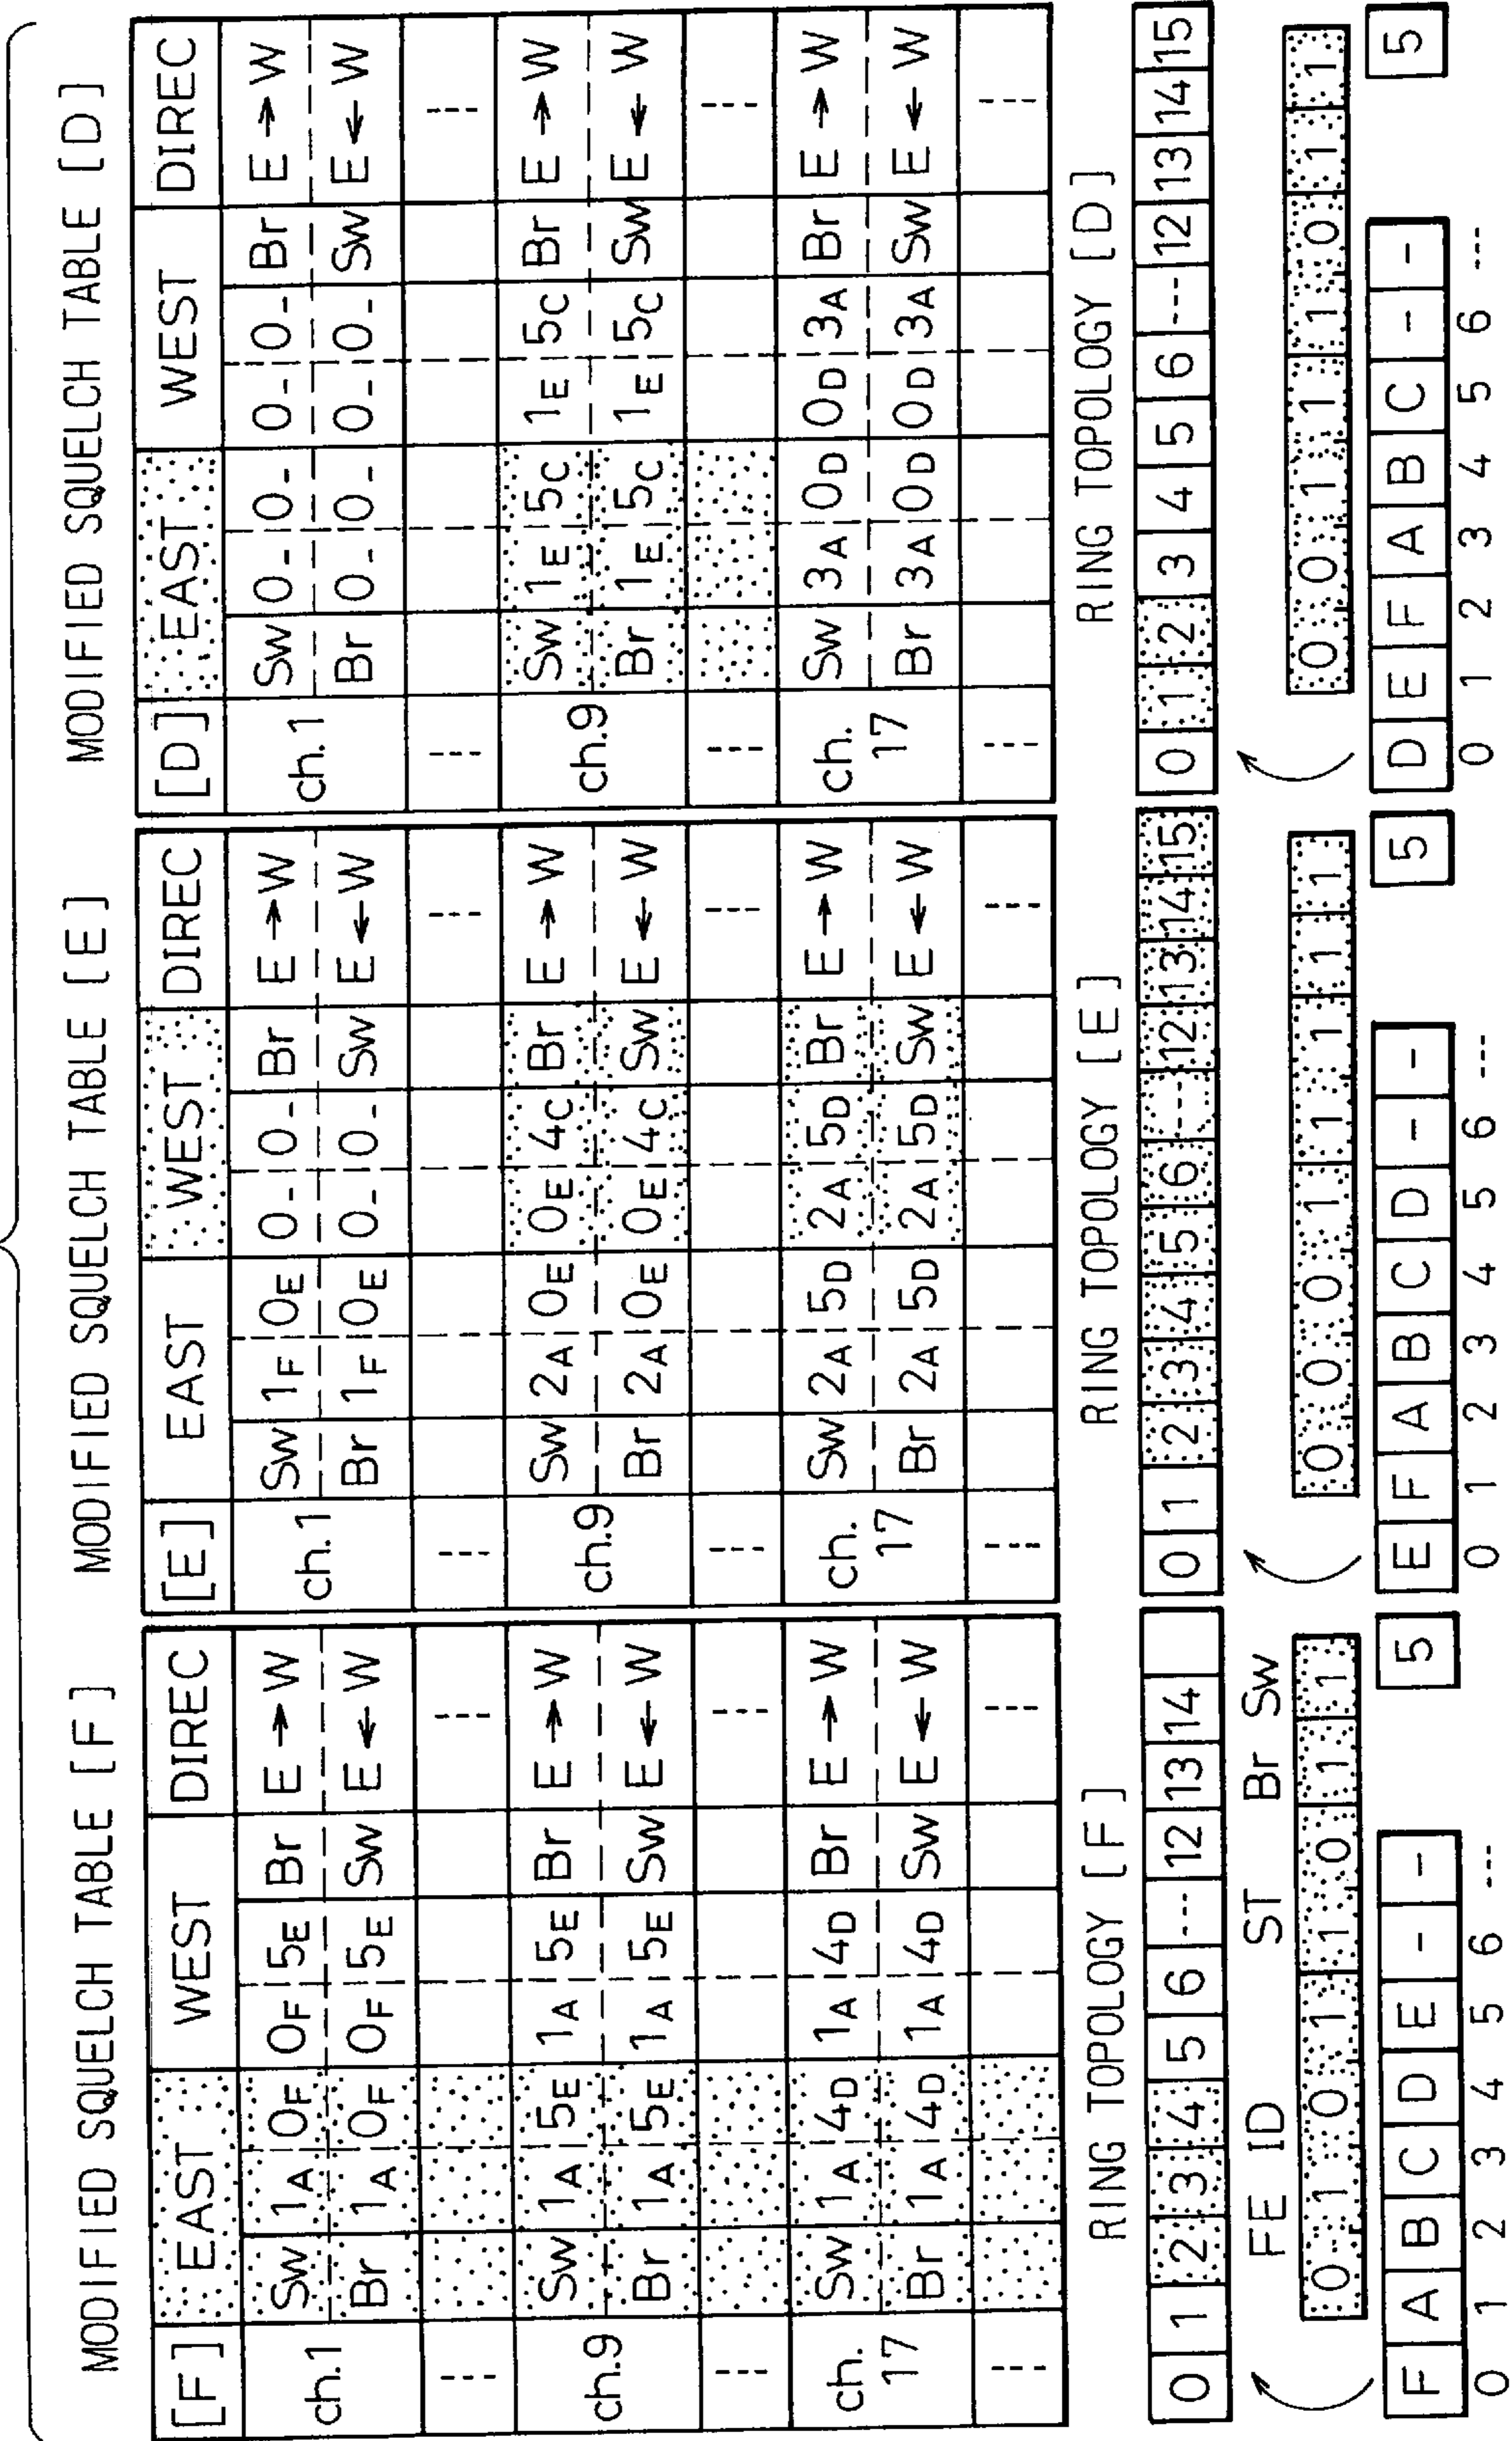 MODIFIED SQUELCH TABLE [F]
[F] EAST WEST DIREC
ch.1 Sw 1A 0F 0F 5E Br E→W
Br 1A 0F 0F 5E Sw E←W
--- ---
ch.9 Sw 1A 5E 1A 5E Br E→W
Br 1A 5E 1A 5E Sw E←W
--- ---
ch.17 Sw 1A 4D 1A 4D Br E→W
Br 1A 4D 1A 4D Sw E←W
--- ---
RING TOPOLOGY [F]
0 1 2 3 4 5 6 --- 12 13 14
FE ID ST Br Sw
0 1 0 1 1 0 1 1
F A B C D E - - 5
0 1 2 3 4 5 6 ---
MODIFIED SQUELCH TABLE [E]
[E] EAST WEST DIREC
ch.1 Sw 1F 0E 0- 0- Br E→W
Br 1F 0E 0- 0- Sw E←W
--- ---
ch.9 Sw 2A 0E 0E 4C Br E→W
Br 2A 0E 0E 4C Sw E←W
--- ---
ch.17 Sw 2A 5D 2A 5D Br E→W
Br 2A 5D 2A 5D Sw E←W
--- ---
RING TOPOLOGY [E]
0 1 2 3 4 5 6 --- 12 13 14 15
0 0 0 1 1 1 1 1
E F A B C D - - 5
0 1 2 3 4 5 6 ---
MODIFIED SQUELCH TABLE [D]
[D] EAST WEST DIREC
ch.1 Sw 0- 0- 0- 0- Br E→W
Br 0- 0- 0- 0- Sw E←W
--- ---
ch.9 Sw 1E 5C 1E 5C Br E→W
Br 1E 5C 1E 5C Sw E←W
--- ---
ch.17 Sw 3A 0D 0D 3A Br E→W
Br 3A 0D 0D 3A Sw E←W
--- ---
RING TOPOLOGY [D]
0 1 2 3 4 5 6 --- 12 13 14 15
0 0 1 1 1 0 1 1
D E F A B C - - 5
0 1 2 3 4 5 6 ---